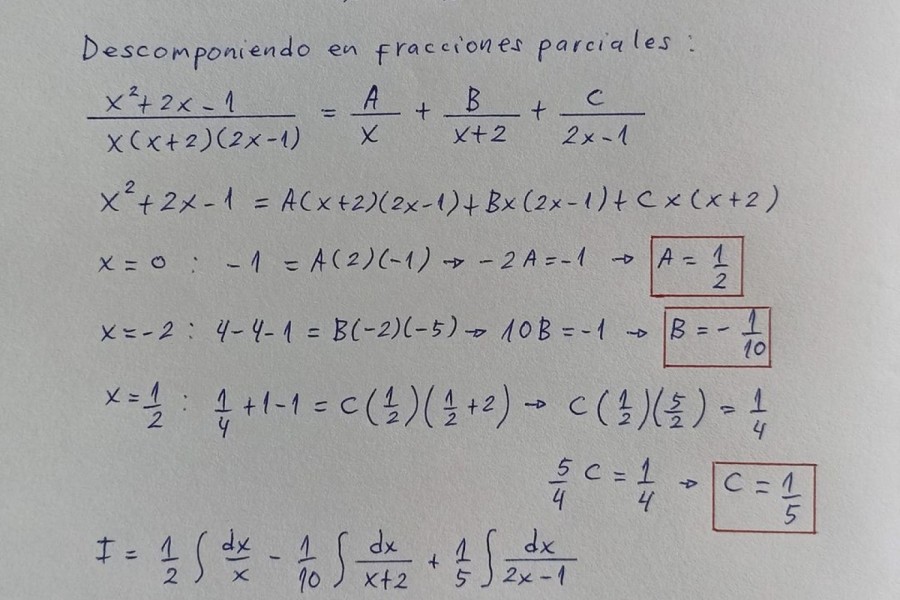 Descomponiendo en fracciones parciales:
x²+2x-1 / x(x+2)(2x-1) = A/x + B/x+2 + C/2x-1
x²+2x-1 = A(x+2)(2x-1)+Bx(2x-1)+Cx(x+2)
x=0 : -1 = A(2)(-1) → -2A=-1 → A=1/2
x=-2 : 4-4-1 = B(-2)(-5) → 10B=-1 → B=-1/10
x=1/2 : 1/4+1-1 = C(1/2)(1/2+2) → C(1/2)(5/2) = 1/4
5/4 C = 1/4 → C = 1/5
I = 1/2 ∫ dx/x - 1/10 ∫ dx/x+2 + 1/5 ∫ dx/2x-1